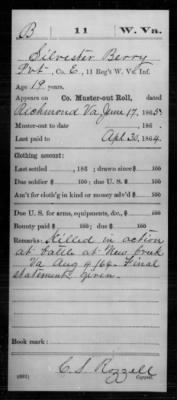 B 11 W. Va.
Silvester Berry
Pvt, Co. E, 11 Reg't W. Va. Inf.
Age 19 years.
Appears on Co. Muster-out Roll, dated
Richmond Va June 17, 1865.
Muster-out to date , 186 .
Last paid to Apr 30, 1864.
Clothing account:
Last settled , 186 ; drawn since $ 100
Due soldier $ 100; due U. S. $ 100
Am't for cloth'g in kind or money adv'd $ 100
Due U. S. for arms, equipments, &c., $ 100
Bounty paid $ 100; due $ 100
Remarks: Killed in action
at battle at New Creek
Va Aug 4/64. Final
statement given.
Book mark:
C. S. Rozzell
Copyist.